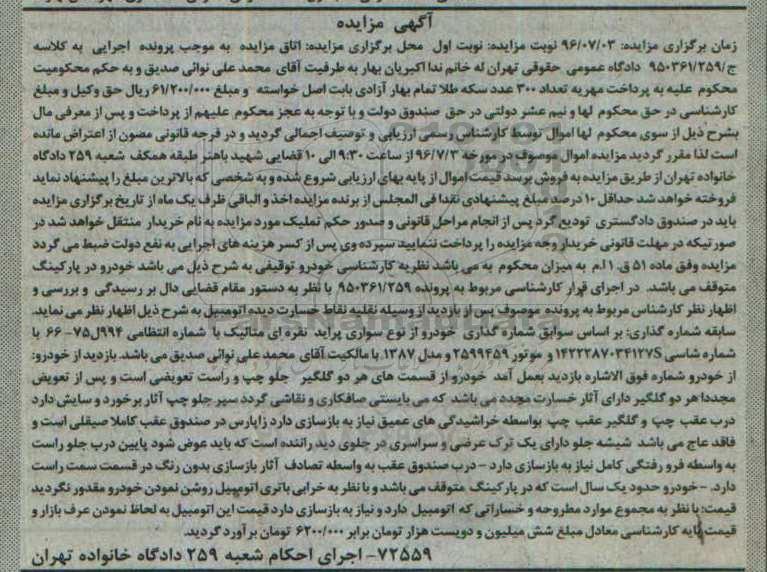 آگهی مزایده
زمان برگزاری مزایده: ۹۶/۰۷/۰۳ نوبت مزایده: نوبت اول محل برگزاری مزایده: اتاق مزایده به موجب پرونده اجرایی به کلاسه
ج/۹۵۰۳۶۱/۲۵۹ دادگاه عمومی حقوقی تهران له خانم ندا اکبریان بهار به طرفیت آقای محمد علی نوائی صدیق و به حکم محکومیت
محکوم علیه به پرداخت مهریه تعداد ۳۰۰ عدد سکه طلا تمام بهار آزادی بابت اصل خواسته و مبلغ ۶۱/۲۰۰/۰۰۰ ریال حق وکیل و مبلغ
کارشناسی در حق محکوم لها و نیم عشر دولتی در حق صندوق دولت و با توجه به عجز محکوم علیهم از پرداخت و پس از معرفی مال
بشرح ذیل از سوی محکوم لها اموال توسط کارشناس رسمی ارزیابی و توصیف اجمالی گردید و در فرجه قانونی مصون از اعتراض مانده
است لذا مقرر گردید مزایده اموال موصوف در مورخه ۹۶/۷/۳ از ساعت ۹:۳۰ الی ۱۰ قضایی شهید باهنر طبقه همکف شعبه ۲۵۹ دادگاه
خانواده تهران از طریق مزایده به فروش برسد قیمت اموال از پایه بهای ارزیابی شروع شده و به شخصی که بالاترین مبلغ را پیشنهاد نماید
فروخته خواهد شد حداقل ۱۰ درصد مبلغ پیشنهادی نقدا فی المجلس از برنده مزایده اخذ و الباقی ظرف یک ماه از تاریخ برگزاری مزایده
باید در صندوق دادگستری تودیع گرد پس از انجام مراحل قانونی و صدور حکم تملیک مورد مزایده به نام خریدار منتقل خواهد شد در
صورتیکه در مهلت قانونی خریدار وجه مزایده را پرداخت ننمایید سپرده وی پس از کسر هزینه های اجرایی به نفع دولت ضبط می گردد
مزایده وفق ماده ۵۱ ق.ا.م به میزان محکوم به می باشد نظریه کارشناسی خودرو توقیفی به شرح ذیل می باشد خودرو در پارکینگ
متوقف می باشد. در اجرای قرار کارشناسی مربوط به پرونده ۹۵۰۳۶۱/۲۵۹ با نظر به دستور مقام قضایی دال بر رسیدگی و بررسی و
اظهار نظر کارشناس مربوط به پرونده موصوف پس از بازدید از وسیله نقلیه نقاط خسارت دیده اتومبیل به شرح ذیل اظهار نظر می نماید.
سابقه شماره گذاری: بر اساس سوابق شماره گذاری خودرو از نوع سواری پراید نقره ای متالیک با شماره انتظامی ۹۹۴ل۷۵-۶۶ با
شماره شاسی S۱۴۲۲۲۸۷۰۳۴۱۲۷ و موتور ۲۵۹۹۴۵۹ و مدل ۱۳۸۷ با مالکیت آقای محمد علی نوائی صدیق می باشد. بازدید از خودرو:
از خودرو شماره فوق الاشاره بازدید بعمل آمد خودرو از قسمت های هر دو گلگیر جلو چپ و راست تعویضی است و پس از تعویض
مجددا هر دو گلگیر دارای آثار خسارت مجدد می باشد که می بایستی صافکاری و نقاشی گردد سپر جلو چپ آثار برخورد و سایش دارد
درب عقب چپ و گلگیر عقب چپ بواسطه خراشیدگی های عمیق نیاز به بازسازی دارد زاپارس در صندوق عقب کاملا صیقلی است و
فاقد عاج می باشد شیشه جلو دارای یک ترک عرضی و سراسری در جلوی دید راننده است که باید عوض شود پایین درب جلو راست
به واسطه فرو رفتگی کامل نیاز به بازسازی دارد - درب صندوق عقب به واسطه تصادف آثار بازسازی بدون رنگ در قسمت سمت راست
دارد. - خودرو حدود یک سال است که در پارکینگ متوقف می باشد و با نظر به خرابی باتری اتومبیل روشن نمودن خودرو مقدور نگردید
قیمت: با نظر به مجموع موارد مطروحه و خساراتی که اتومبیل دارد و نیاز به بازسازی دارد قیمت این اتومبیل به لحاظ نمودن عرف بازار و
قیمت پایه کارشناسی معادل مبلغ شش میلیون و دویست هزار تومان برابر ۶۲۰۰/۰۰۰ تومان برآورد گردید.
۷۲۵۵۹- اجرای احکام شعبه ۲۵۹ دادگاه خانواده تهران